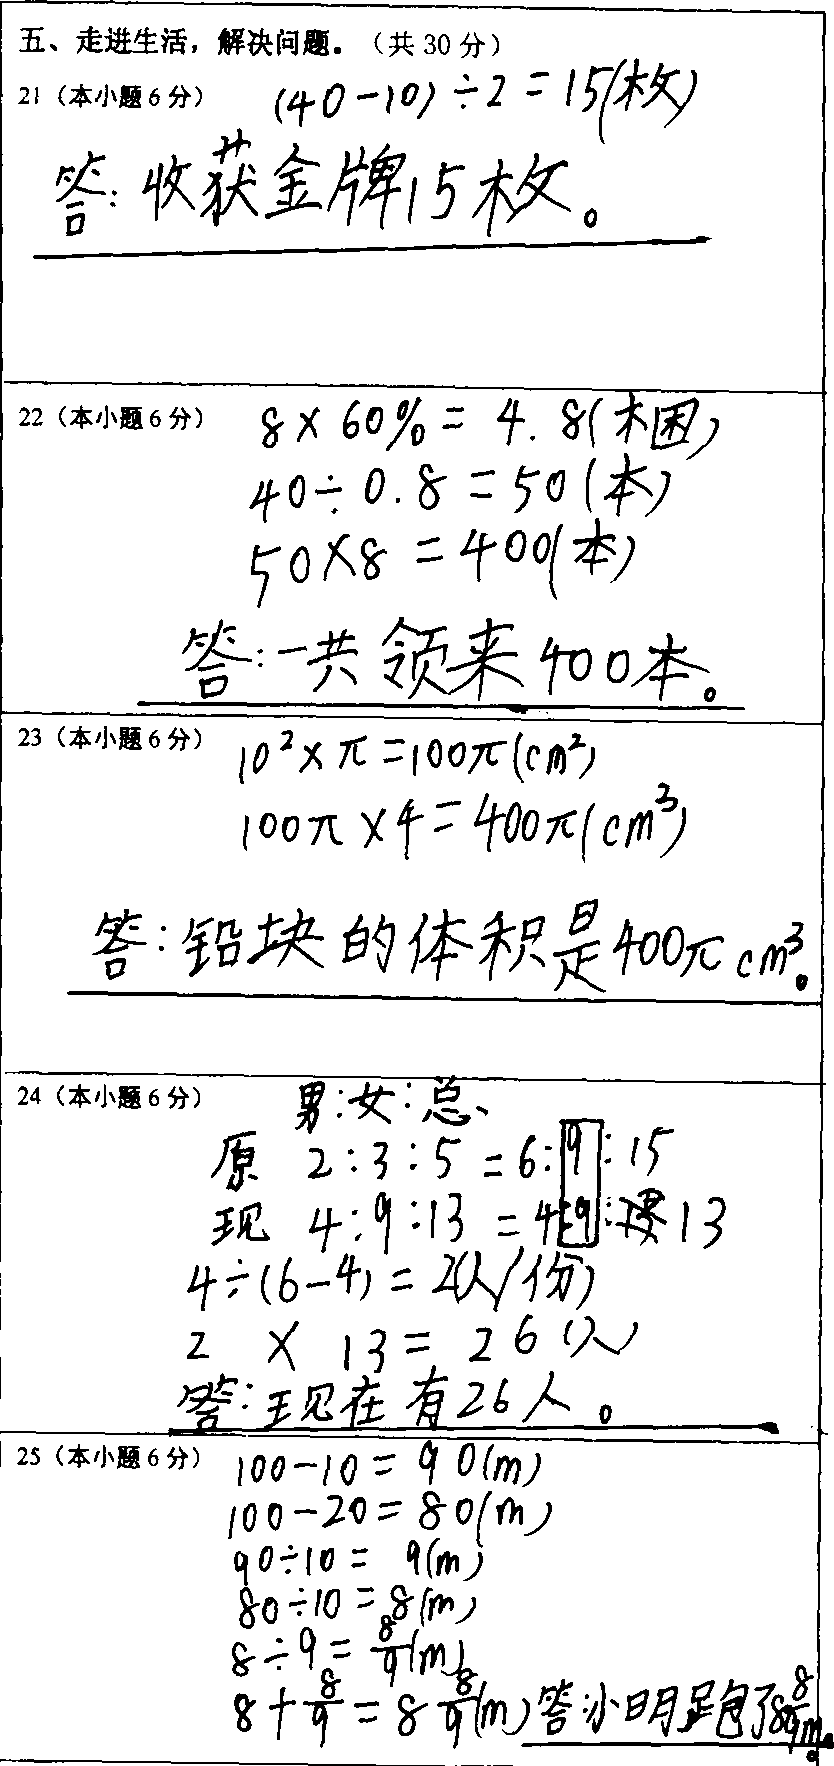 五、走进生活，解决问题。（共 30 分）
21（本小题 6 分） (40-10)÷2=15(枚)
答:收获金牌15枚。
22（本小题 6 分） 8×60%=4.8(捆)
40÷0.8=50(本)
50×8=400(本)
答:一共领来400本。
23（本小题 6 分） 10²×π=100π(cm²)
100π×4=400π(cm³)
答:铅块的体积是400πcm³。
24（本小题 6 分） 男:女:总
原 2:3:5=6:9:15
现 4:9:13=4:9:13
4÷(6-4)=2(人/份)
2×13=26(人)
答:现在有26人。
25（本小题 6 分） 100-10=90(m)
100-20=80(m)
90÷10=9(m)
80÷10=8(m)
8÷9=8/9(m)
8+8/9=8 8/9(m) 答:小明跑了8 8/9m。